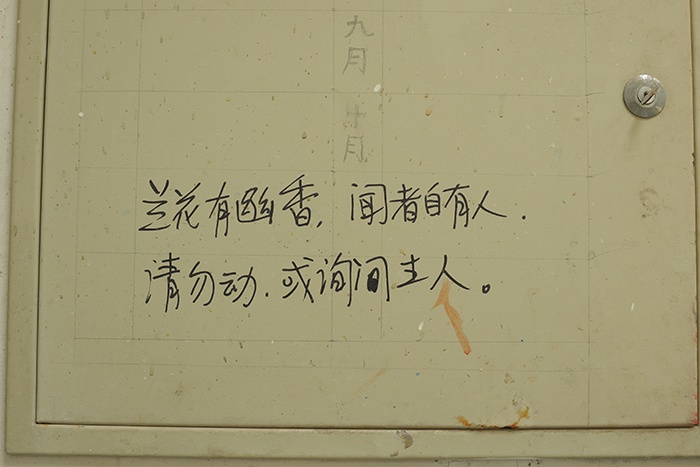 九月
十月
兰花有幽香，闻者自有人．
请勿动．或询问主人。